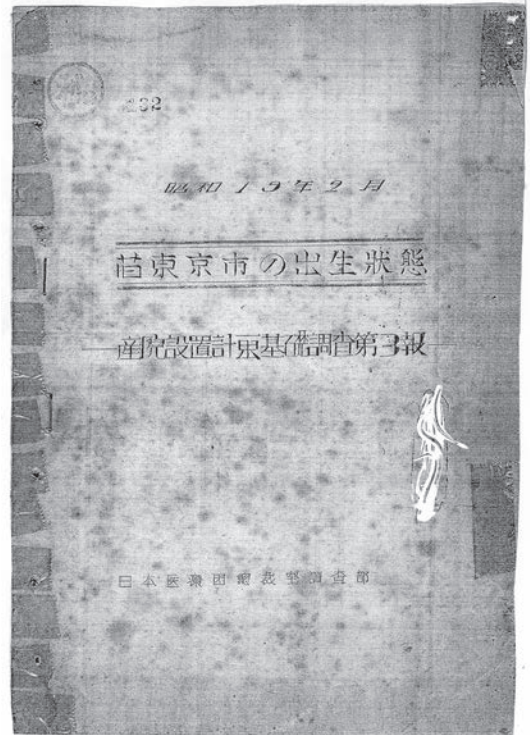 昭和19年2月
東京市の出生狀態
—産院設置計画基礎調査第3報—
日本医療団總裁室調査部